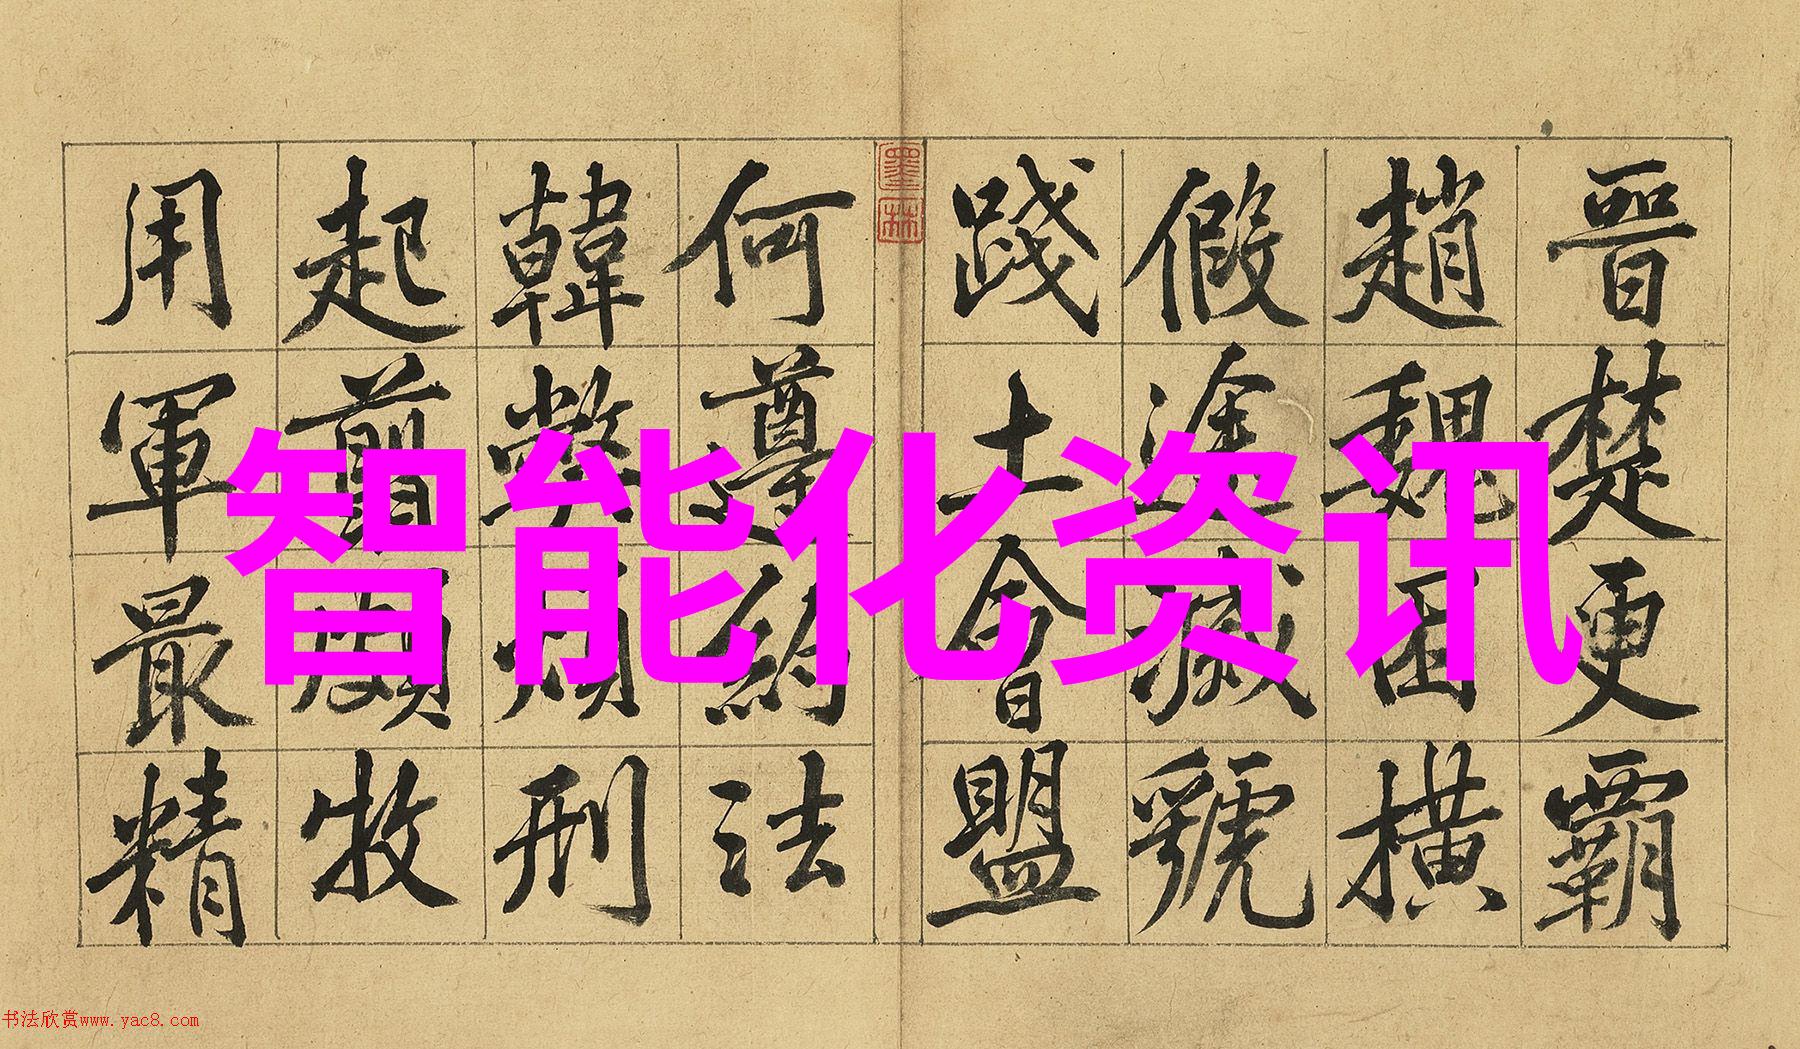 晉楚更霸
趙魏困橫
假途滅虢
踐土會盟
何遵約法
韓弊煩刑
起翦頗牧
用軍最精
墨林
智能化资讯
书法欣赏www.yac8.com